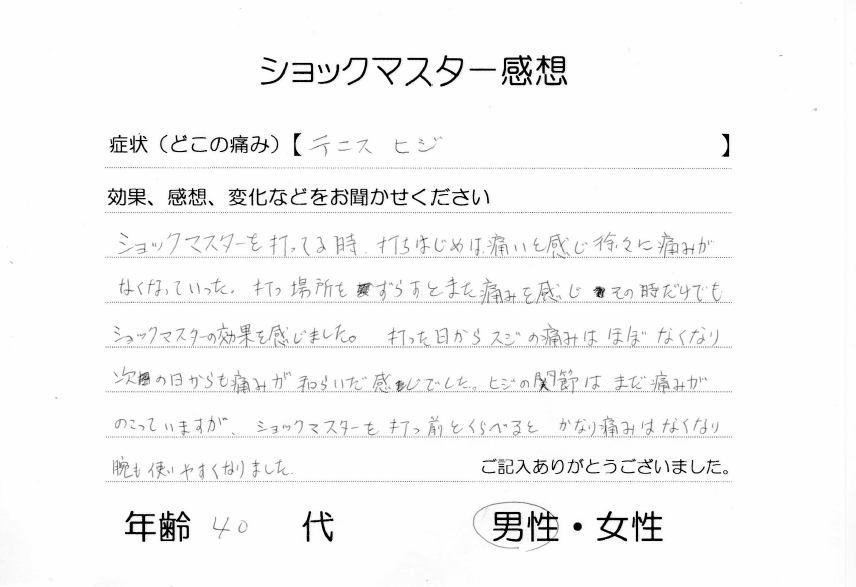 ショックマスター感想
症状（どこの痛み）【 テニス ヒジ 】
効果、感想、変化などをお聞かせください
ショックマスターを打ってる時、打ちはじめは、痛いと感じ徐々に痛みが
なくなっていった。打つ場所をずらすとまた痛みを感じ その時だけでも
ショックマスターの効果を感じました。 打った日からスジの痛みは ほぼ なくなり
次の日からも痛みが 和らいだ感じでした。ヒジの関節は まだ痛みが
のこっていますが、ショックマスターを打つ前とくらべると かなり痛みはなくなり
腕も使いやすくなりました。 ご記入ありがとうございました。
年齢 40 代 男性・女性